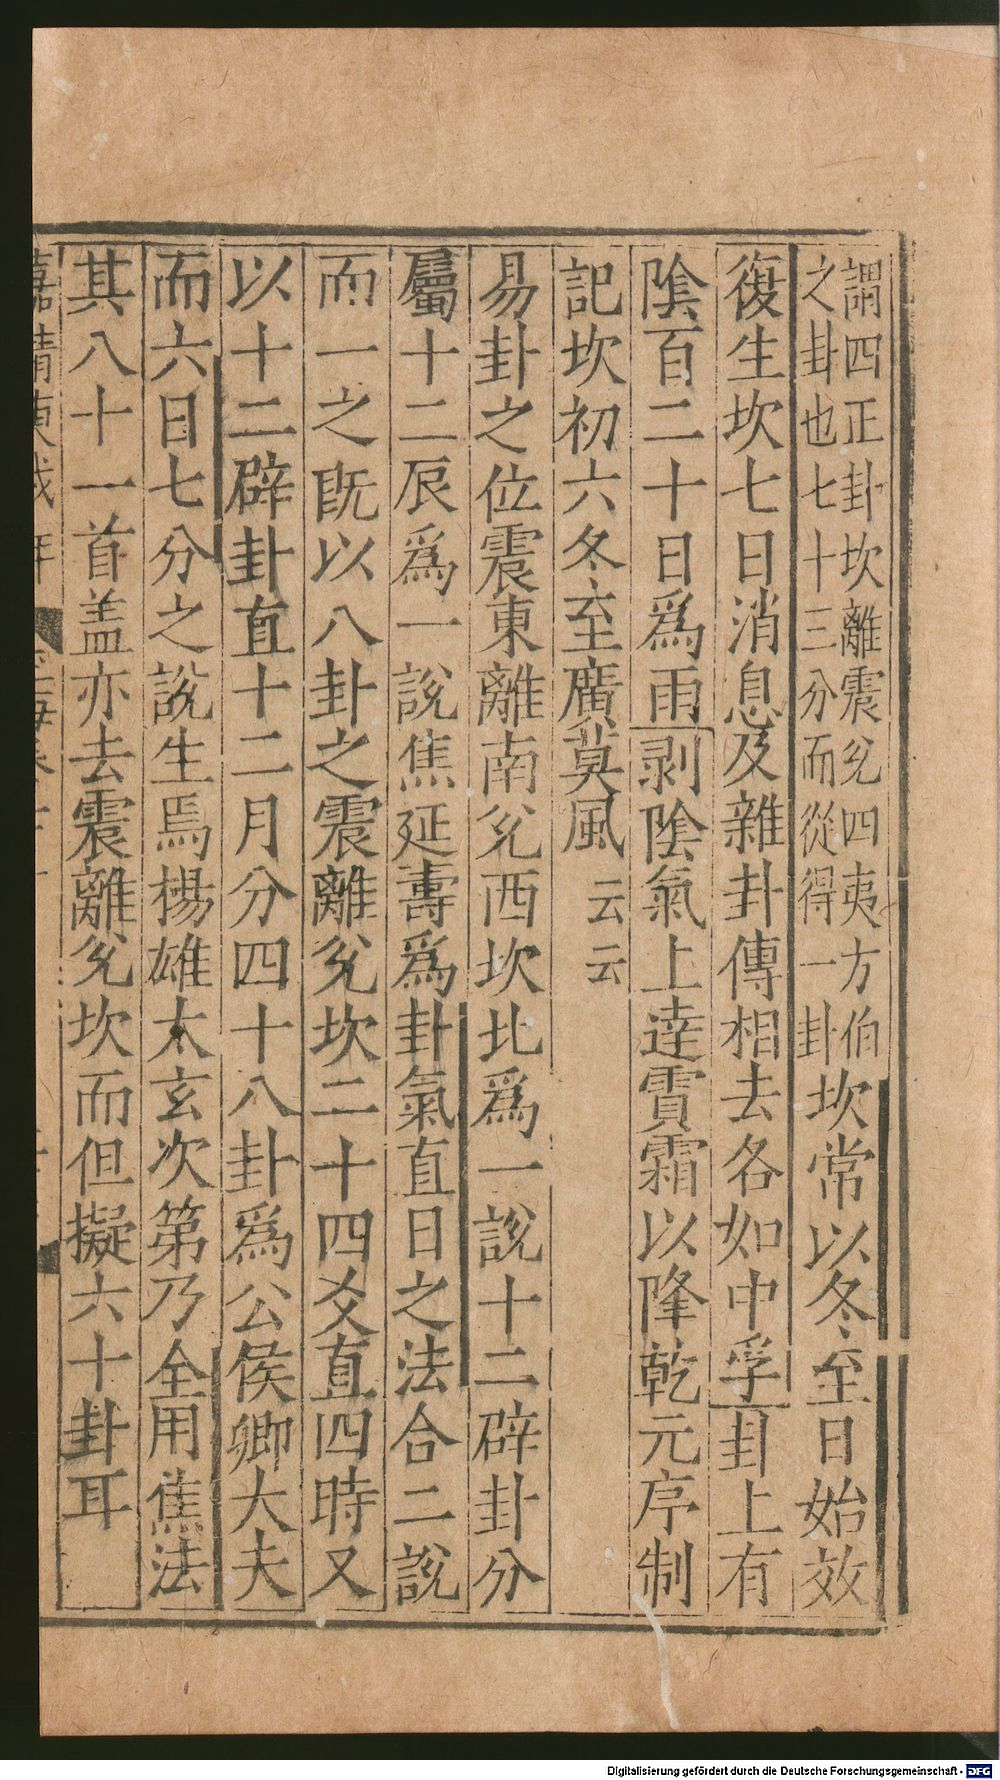 謂四正卦坎離震兊四夷方伯
之卦也七十三分而從得一卦
坎常以冬至日始效
復生坎七日消息及雜卦傳相去各如中孚卦上有
陰百二十日爲雨剥陰氣上達霣霜以降乾元序制
記坎初六冬至廣莫風云云
易卦之位震東離南兊西坎北爲一說十二辟卦分
屬十二辰爲一說焦延壽爲卦氣直日之法合二說
而一之旣以八卦之震離兊坎二十四爻直四時又
以十二辟卦直十二月分四十八卦爲公侯卿大夫
而六日七分之說生焉楊雄太玄次第乃全用焦法
其八十一首盖亦去震離兊坎而但擬六十卦耳
Digitalisierung gefördert durch die Deutsche Forschungsgemeinschaft - DFG